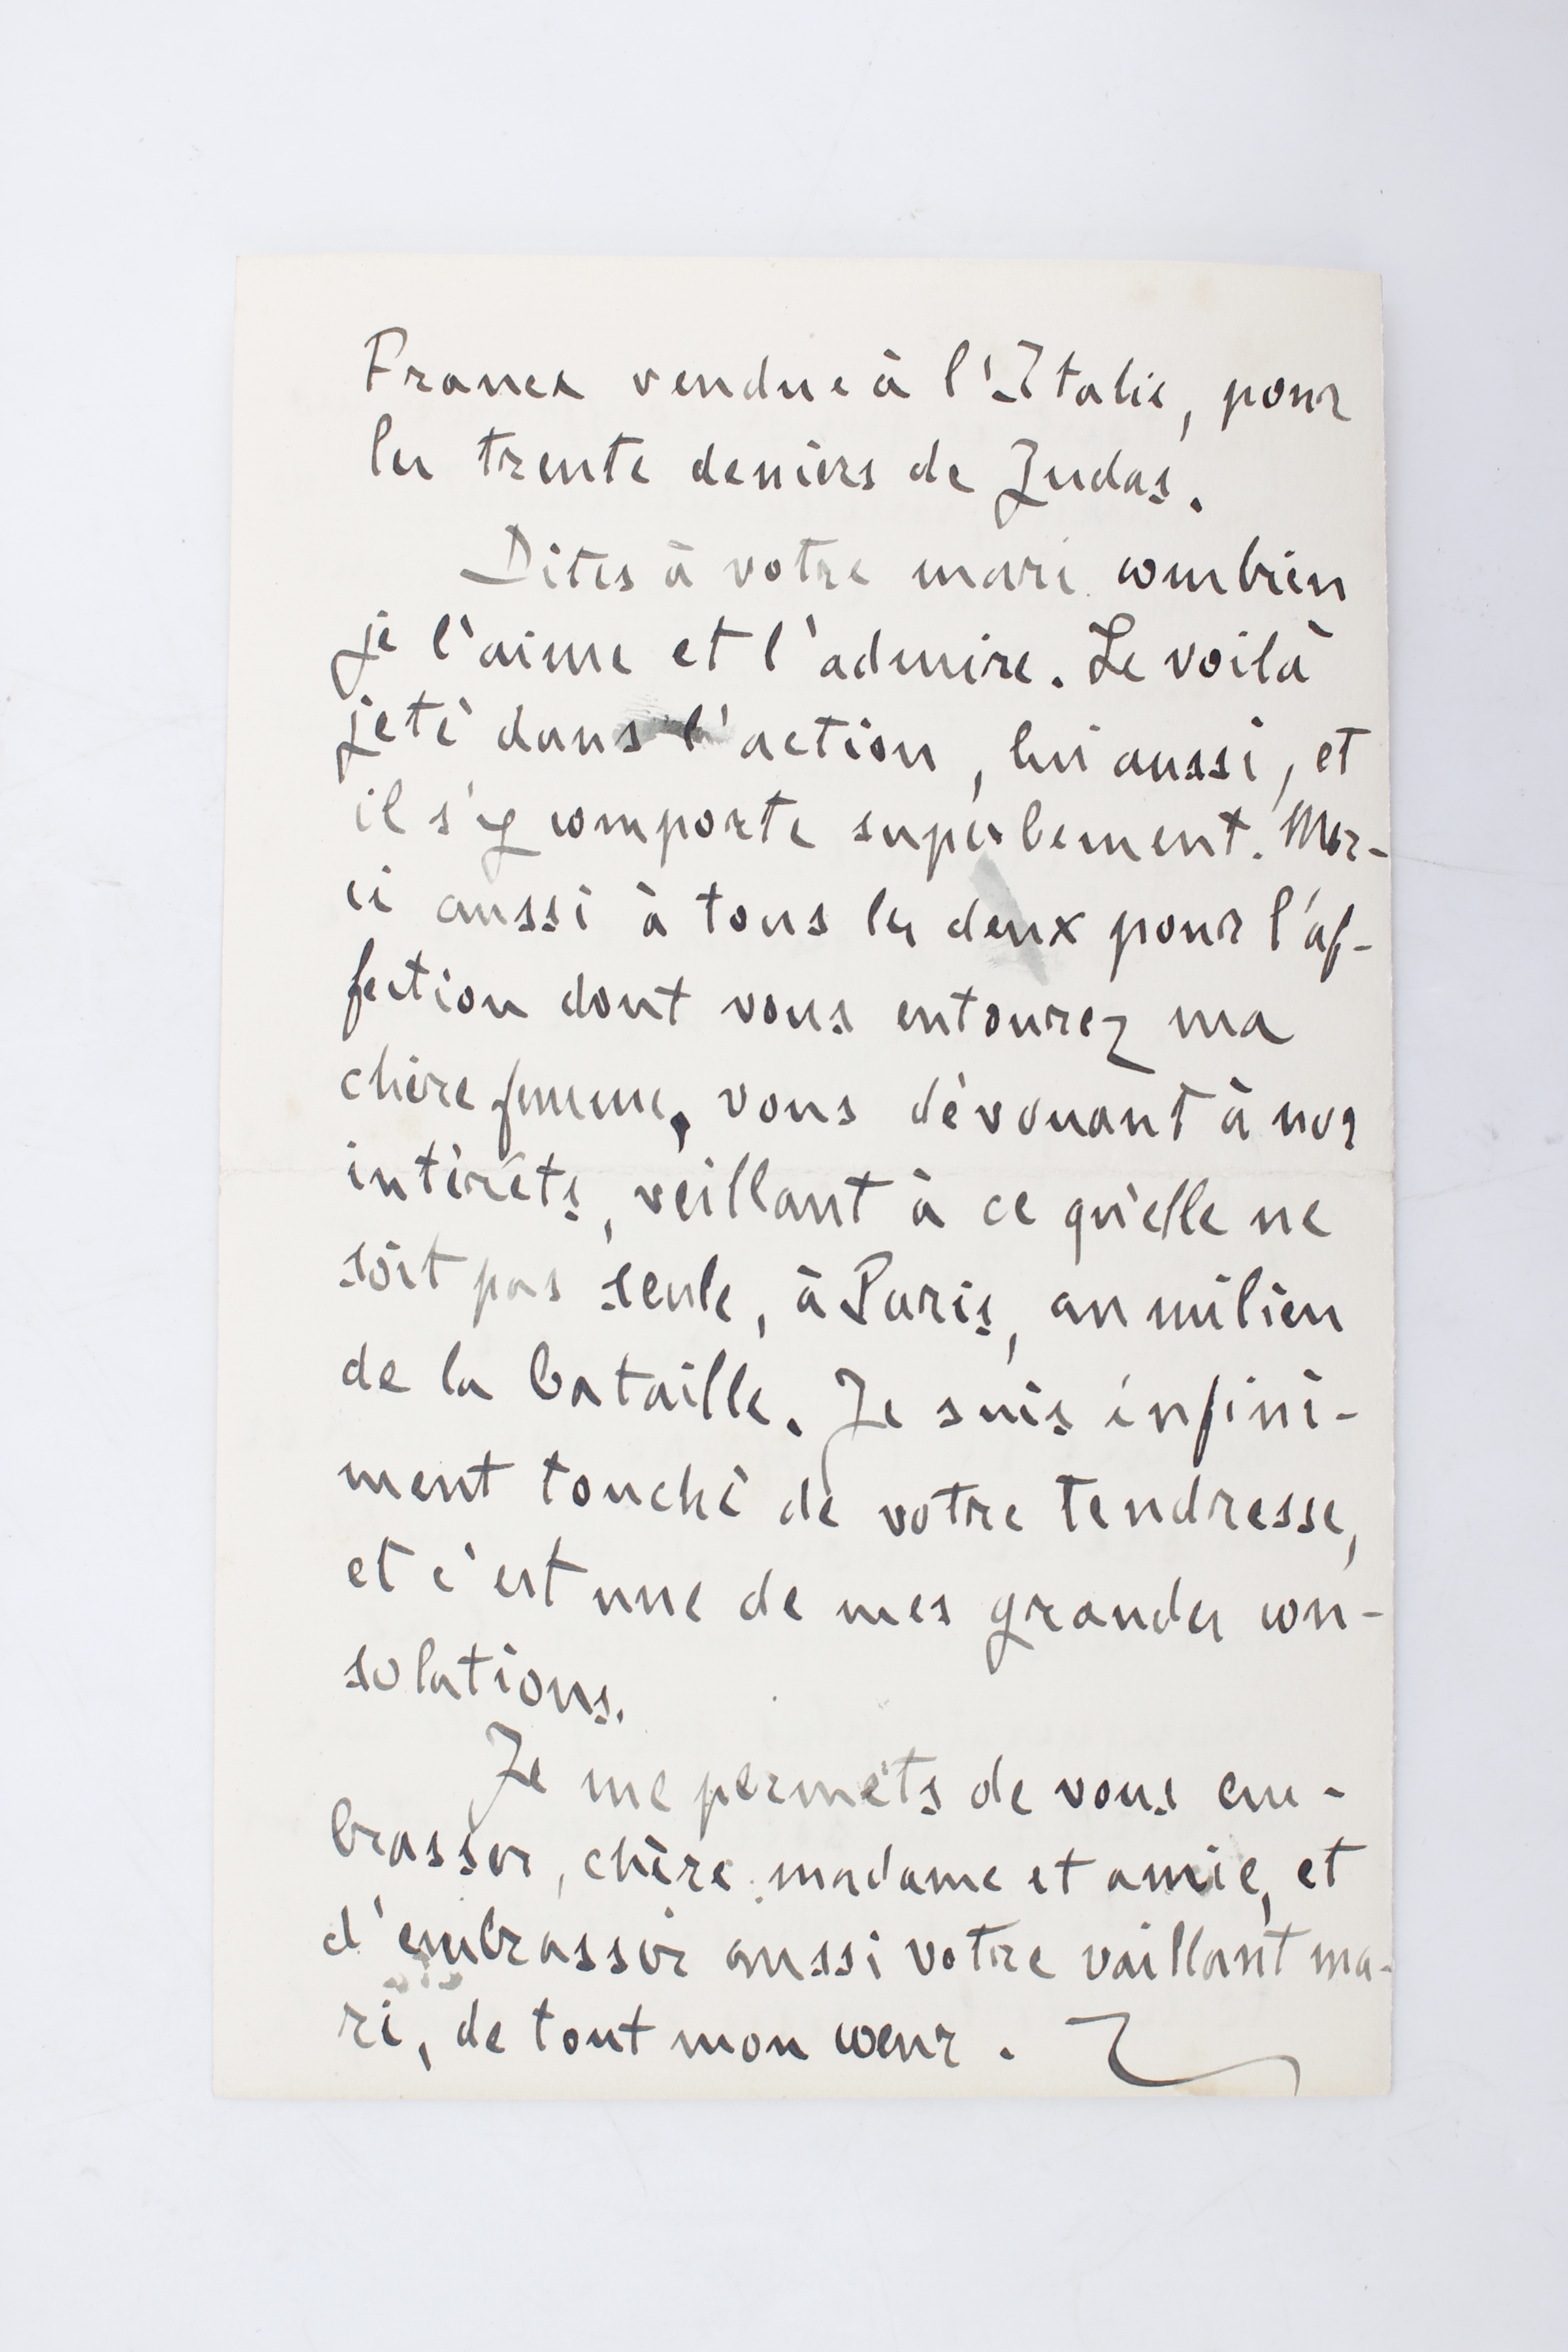 France vendue à l'Italie, pour
les trente deniers de Judas.
Dites à votre mari combien
je l'aime et l'admire. Le voilà
jeté dans l'action, lui aussi, et
il s'y comporte superbement. Mer-
ci aussi à tous les deux pour l'af-
fection dont vous entourez ma
chère femme, vous dévouant à nos
intérêts, veillant à ce qu'elle ne
soit pas seule, à Paris, au milieu
de la bataille. Je suis infini-
ment touché de votre tendresse,
et c'est une de mes grandes con-
solations.
Je me permets de vous em-
brasser, chère madame et amie, et
d'embrasser aussi votre vaillant ma-
ri, de tout mon cœur. Z